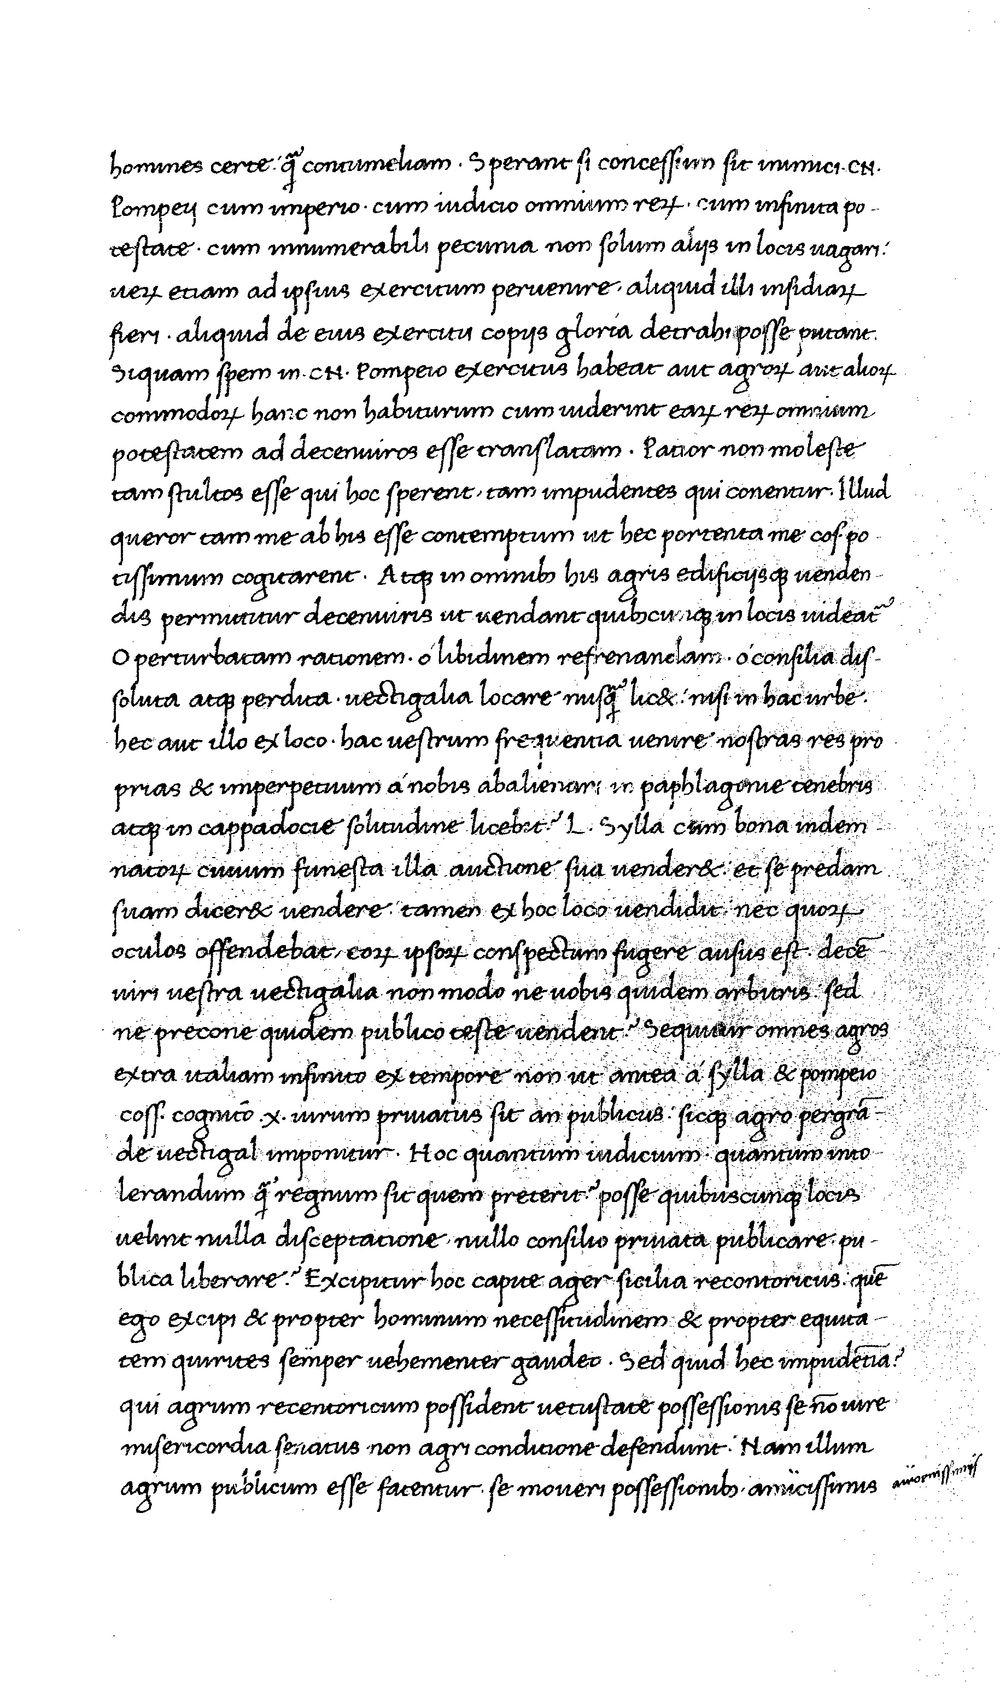 homines certe: qᷓ contumeliam . Sperant si concessum sit inimici .CN.
Pompeij cum imperio . cum iudicio omnium reꝝ . cum infinita po-
testate . cum innumerabili pecunia non solum alijs in locis uagari:
ueꝝ etiam ad ipsius exercitum peruenire . aliquid illi insidiaꝝ
fieri . aliquid de eius exercitu copijs gloria detrahi posse putant.
Siquam spem in .CN. Pompeio exercitus habeat aut agroꝝ aut alioꝝ
commodoꝝ hanc non habiturum cum uiderint eaꝝ reꝝ omnium
potestatem ad decemuiros esse translatam . Patior non moleste
tam stultos esse qui hoc sperent, tam impudentes qui conentur. Illud
queror tam me ab his esse contemptum ut hec portenta me cos. po-
tissimum cogitarent . Atqꝫ in omnibꝫ his agris edificijsqꝫ uenden-
dis permittitur decemuiris ut uendant quibꝫcunqꝫ in locis uideat᷑
O perturbatam rationem . o libidinem refrenandam . o consilia dis-
soluta atqꝫ perdita . uectigalia locare nusqᷓ lic&: nisi in hac urbe .
hec aut illo ex loco . hac uestrum frequentia uenire nostras res pro
prias & imperpetuum a nobis abalienari in paphlagonie tenebris
atqꝫ in cappadocie solitudine licebit? L. Sylla cum bona indem
natoꝝ ciuium funesta illa auctione sua uender&. et se predam
suam dicer& uendere . tamen ex hoc loco uendidit . nec quoꝝ
oculos offendebat, eoꝝ ipsoꝝ conspectum fugere ausus est . decē
uiri uestra uectigalia non modo ne uobis quidem arbitris . sed
ne precone quidem publico teste uendent? Sequitur omnes agros
extra italiam infinito ex tempore non ut antea a sylla & pompeio
coss. cognitō .x. uirum priuatus sit an publicus . sicqꝫ agro pergrā-
de uectigal imponitur . Hoc quantum iudicium . quantum into
lerandum qᷓ regnum sit quem preterit? posse quibuscunqꝫ locis
uelint nulla disceptatione . nullo consilio priuata publicare . pu-
blica liberare? Excipitur hoc capite ager sicilia recontoricus . quē
ego excipi & propter hominum necessitudinem & propter equita-
tem quirites semper uehementer gaudeo . Sed quid hec impudētia?
qui agrum recentoricum possident uetustate possessionis se nō iure
misericordia senatus non agri condicione defendunt . Nam illum
agrum publicum esse fatentur . se moueri possessionibꝫ . amicissimis